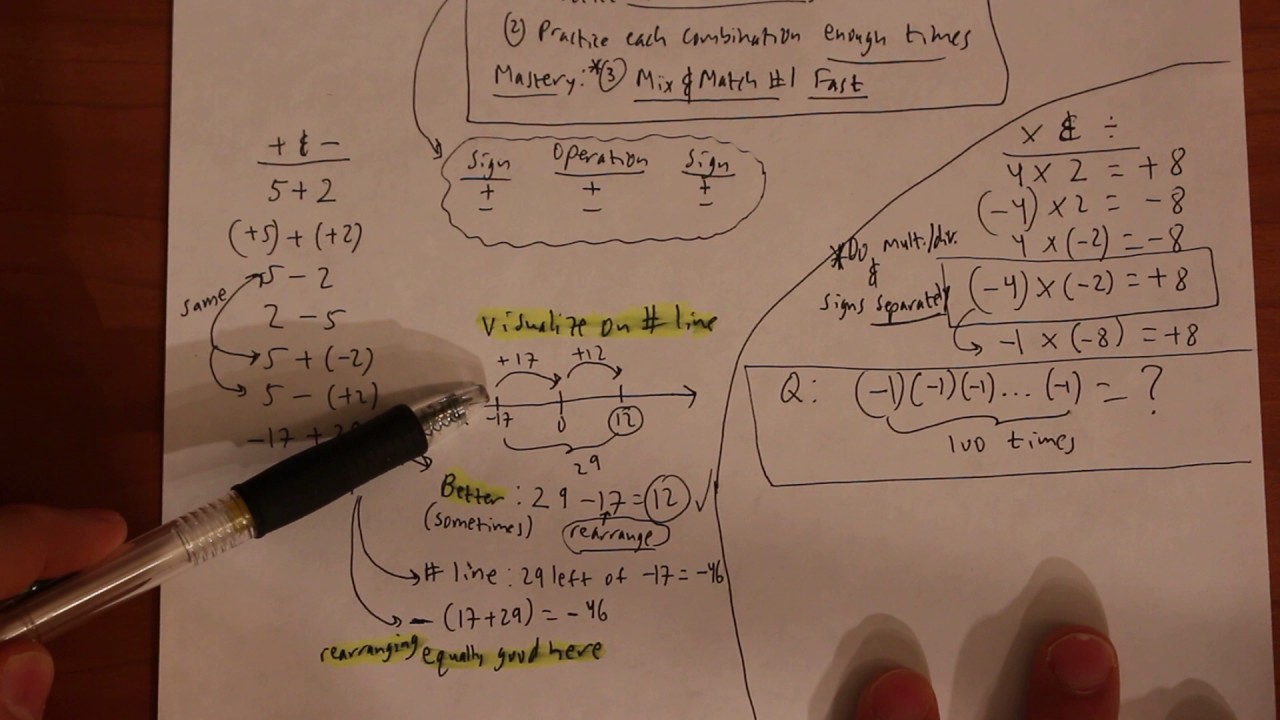 (2) Practice each combination enough times
Mastery: *(3) Mix & Match #1 Fast
Sign Operation Sign
+ + +
− − −
+ & −
5 + 2
(+5) + (+2)
5 − 2
2 − 5
same
5 + (−2)
5 − (+2)
−17 +
Visualize on # line
+17 +12
−17 0 12
29
Better: 29 − 17 = 12 ✓
(sometimes) rearrange
# line: 29 left of −17 = −46
− (17+29) = −46
rearranging equally good here
× & ÷
4 × 2 = +8
(−4) × 2 = −8
4 × (−2) = −8
*Do mult./div.
&
signs separately
(−4) × (−2) = +8
−1 × (−8) = +8
Q: (−1)(−1)(−1)...(−1) = ?
100 times